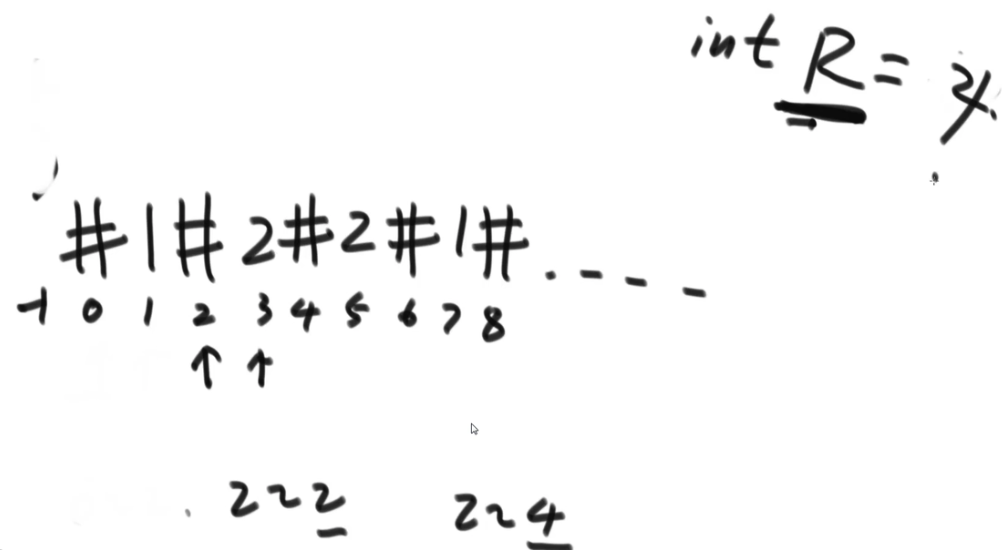 int R =
#1#2#2#1#. - - -
-1 0 1 2 3 4 5 6 7 8
↑ ↑
2~2 2~4